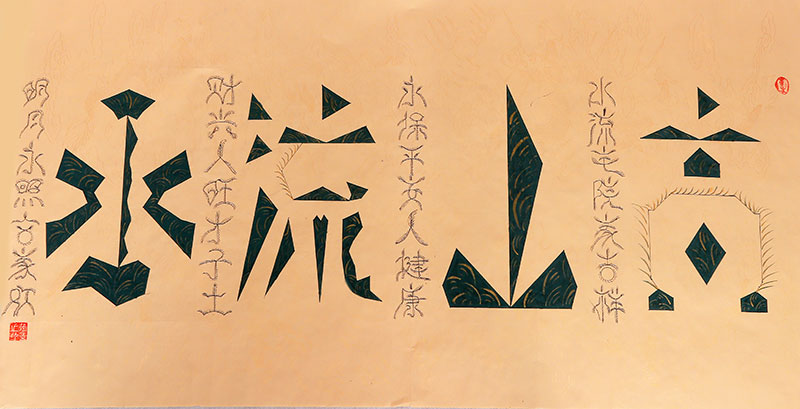 高山流水
水流宅院家吉祥
永保平安人健康
财兴人旺才子士
明月永照家旺